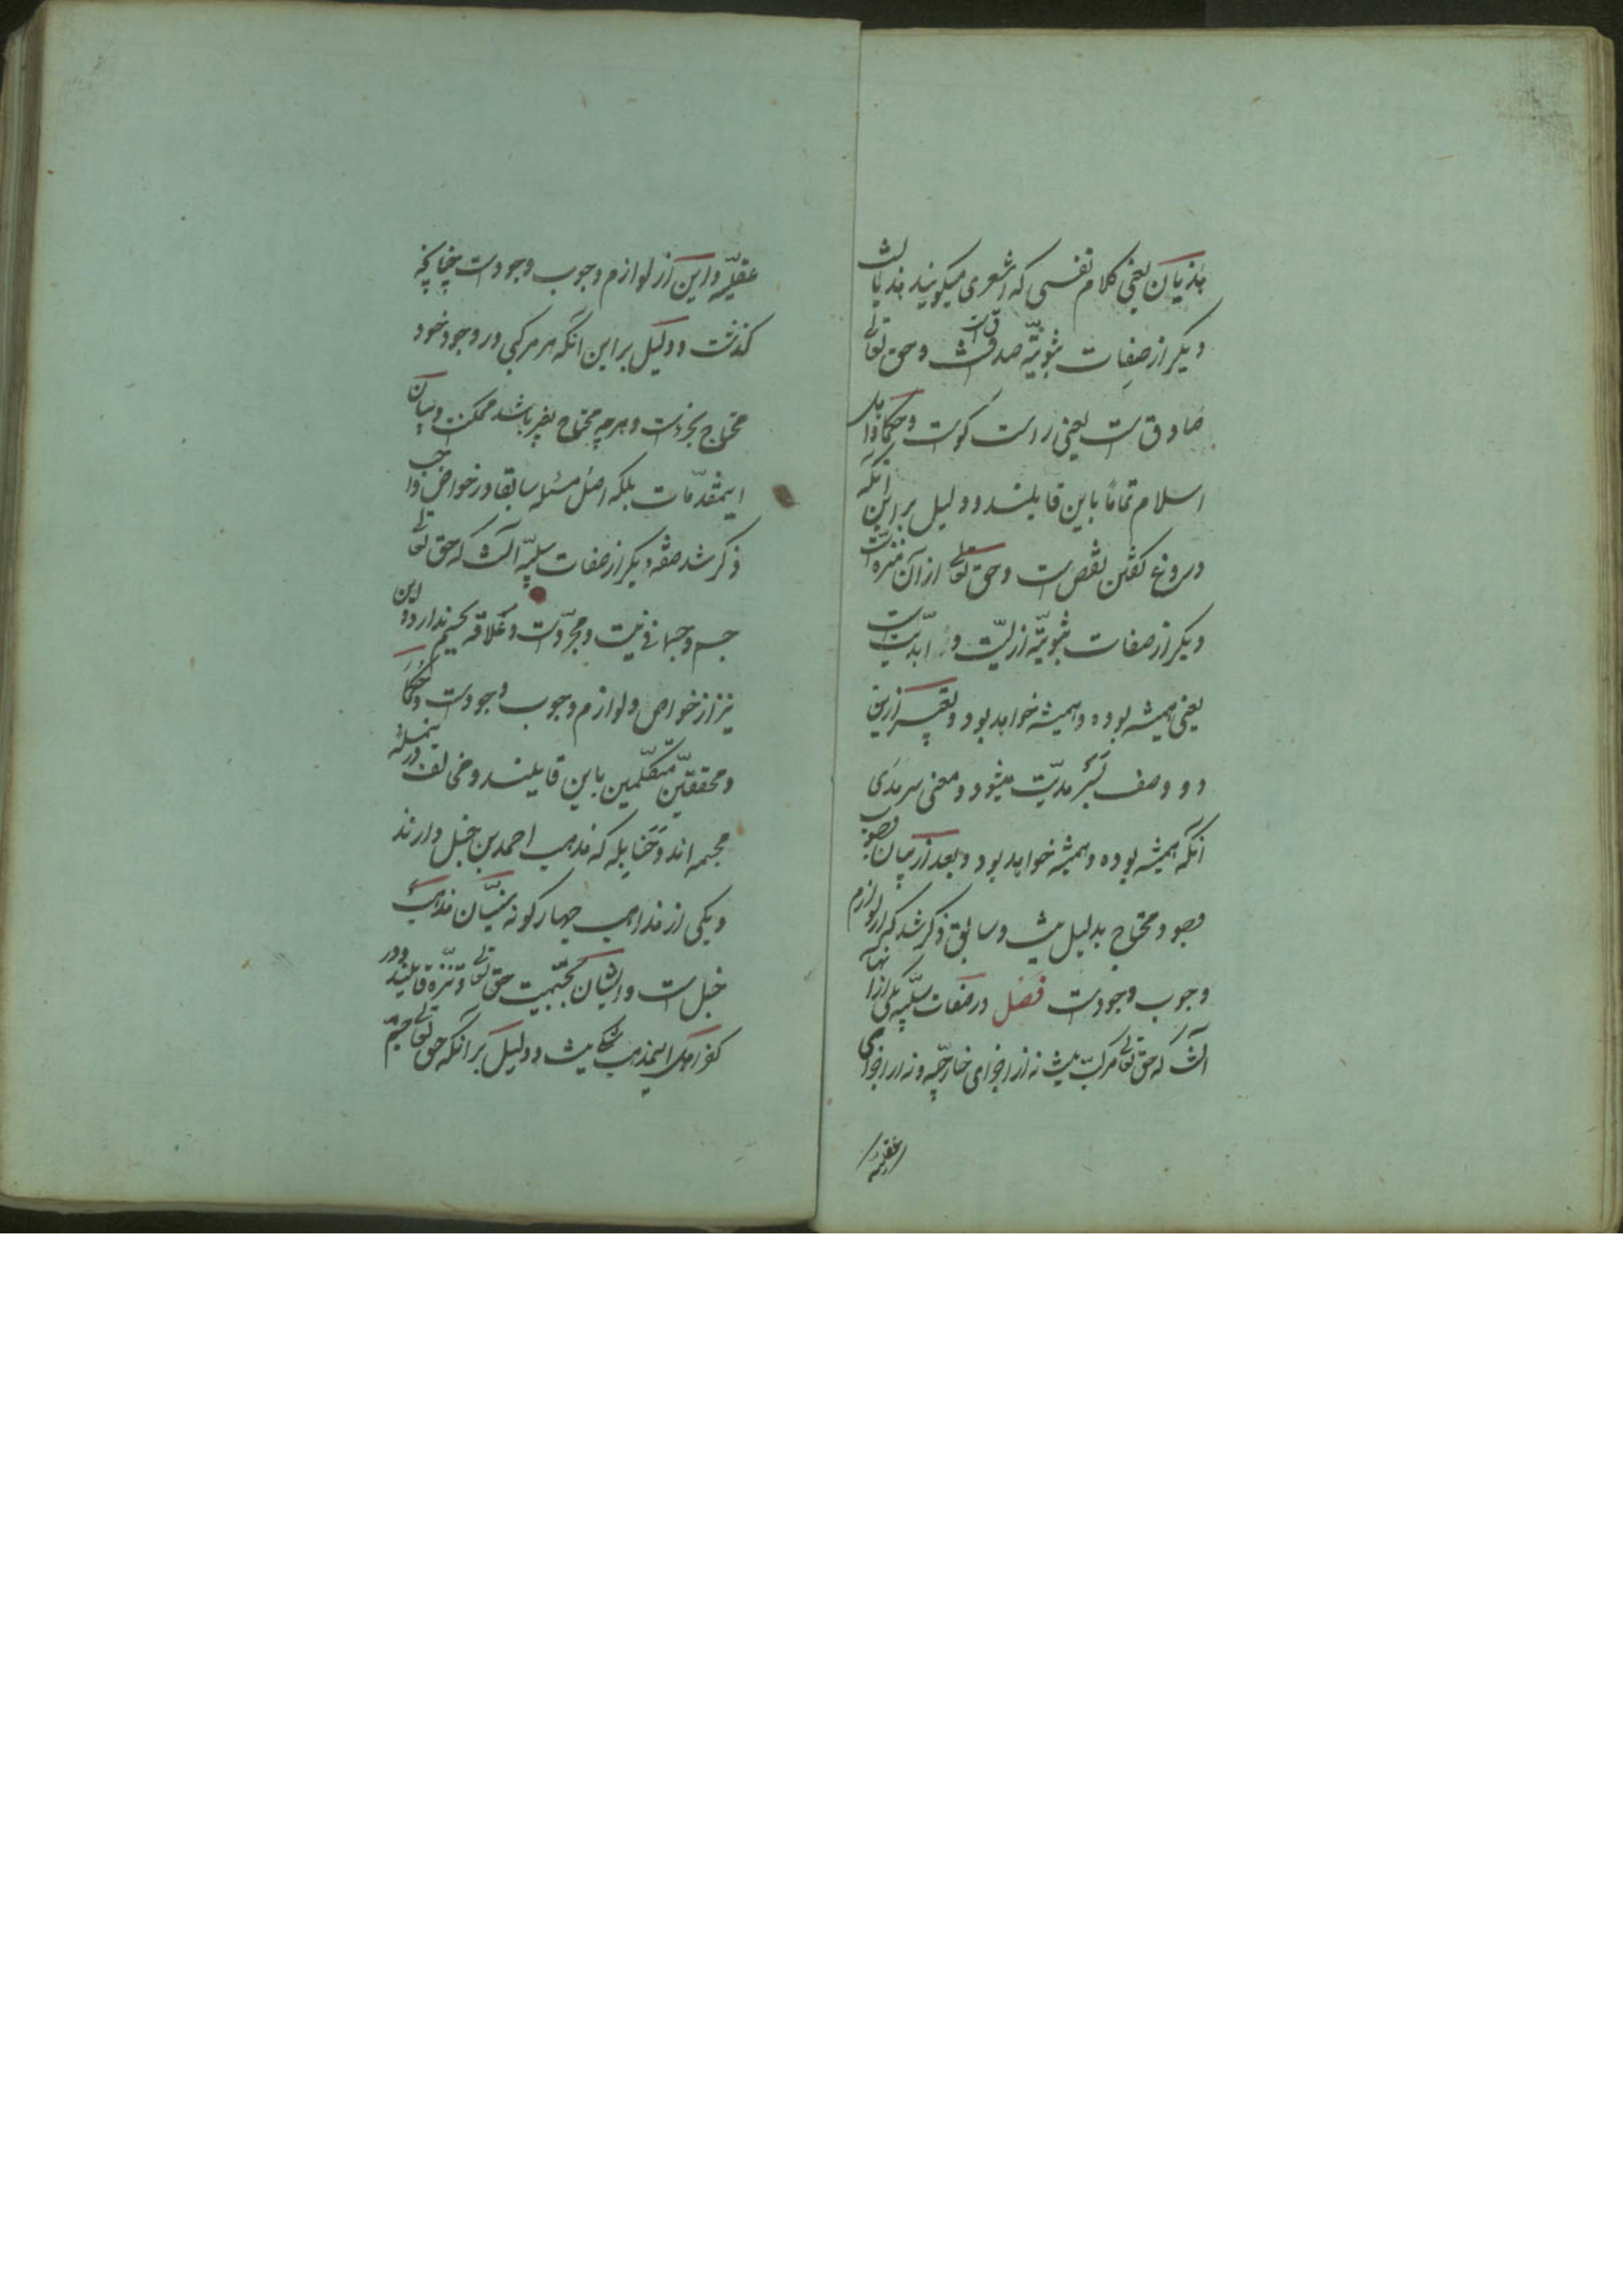 هذیان یعنی کلام نفسی که اشعری میکویند هذیانست
دیکر از صفات ثبوتیّه صدقست و حق تعالی
صادقست یعنی راست کوست و حکما و اهل
اسلام تماماً باین قایلند و دلیل بر این انکه
دروغ کفتن نقصست و حق تعالی از آن منزه است
دیکر از صفات ثبوتیّه ازلیّت و ابدّیت است
یعنی همیشه بوده و همیشه خواهد بود و تعبیر ازین
دو وصف بسرمدیّت میشود و معنی سرمدی
انکه همیشه بوده و همیشه خواهد بود و بعد از بیان وجوب
وجود محتاج بدلیل نیست و سابق ذکر شد که از لوازم
وجوب وجودست فصل در صفات سلبیّه یکی از انها
آنست که حق تعالی مرکب نیست نه از اجزای خارجیّه و نه از اجزای
عقلیه
عقلیّه و این از لوازم وجوب وجودست چنانچه
کذشت و دلیل بر این انکه هر مرکبی در وجود خود
محتاج بجزءست و هرچه محتاج بغیر باشد ممکنست و بیان
اینمقدّمات بلکه اصل مسئله سابقا در خواص واجب
ذکر شد صفة دیکر از صفات سلبیّه آنست که حق تعالی
جسم و جسمانی نیست و مجرّدست و علاقه بجسم ندارد و این
نیز از خواص و لوازم وجوب وجودست و حکما
و محققیّن متکلّمین باین قایلند و مخالف درینمسئله
مجسمه اند و حنابله که مذهب احمد بن حنبل دارند
و یکی از مذاهب چهارکونه سنیّان مذهب
حنبل است و ایشان بجسّمیت حق تعالی و تنزّه قایلند و در
کفر اهل اینمذهب شکی نیست و دلیل بر انکه حق تعالی جسم